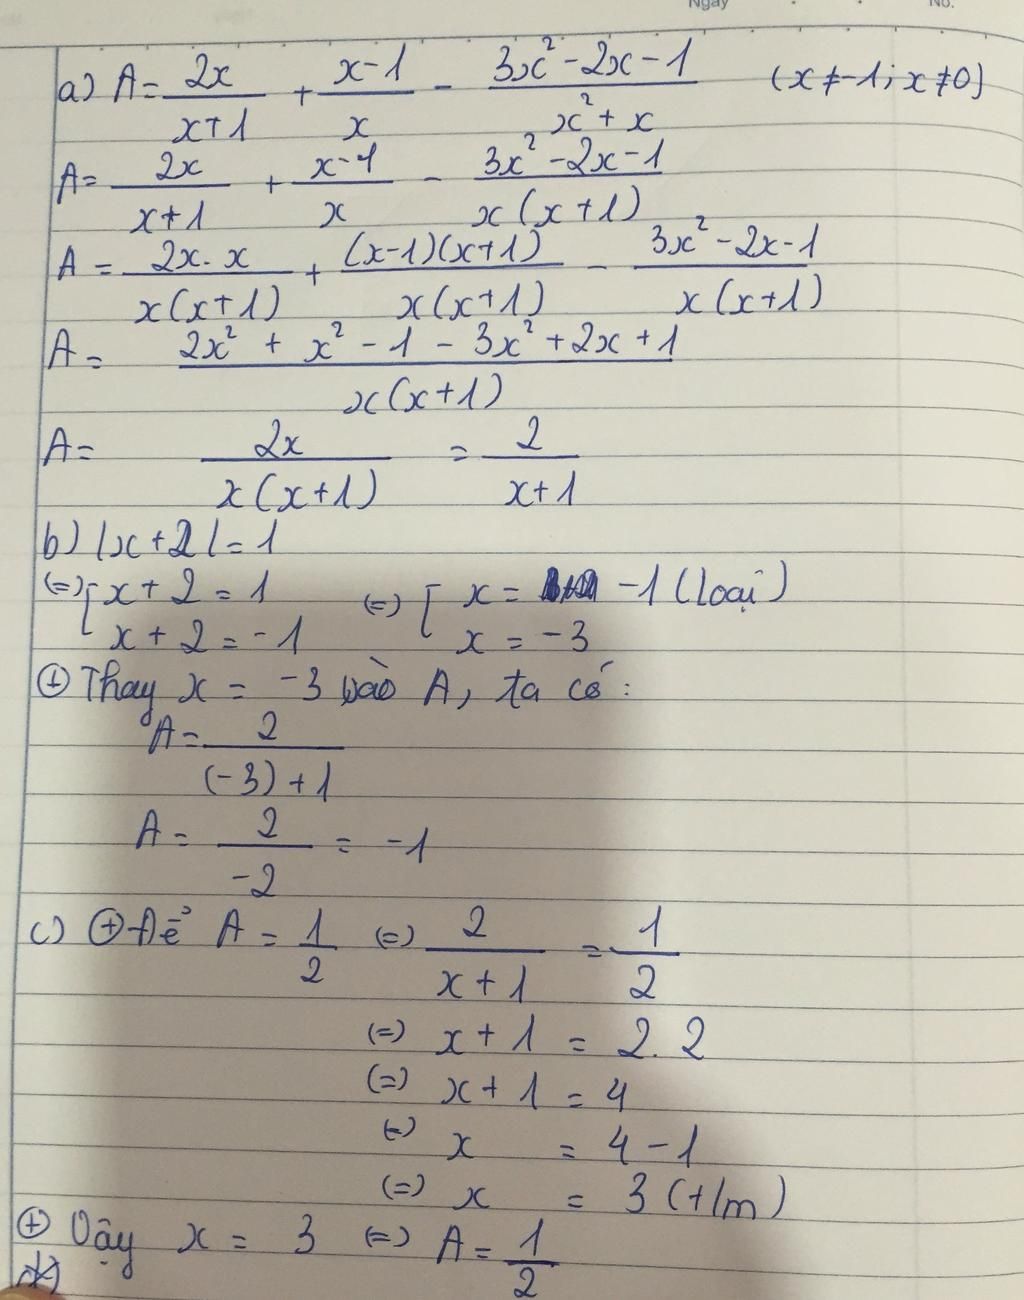 Ngày No.
a) A = 2x/(x+1) + (x-1)/x - (3x² - 2x - 1)/(x² + x) (x ≠ -1; x ≠ 0)
A = 2x/(x+1) + (x-1)/x - (3x² - 2x - 1)/(x(x+1))
A = (2x . x)/(x(x+1)) + ((x-1)(x+1))/(x(x+1)) - (3x² - 2x - 1)/(x(x+1))
A = (2x² + x² - 1 - 3x² + 2x + 1)/(x(x+1))
A = 2x/(x(x+1)) = 2/(x+1)
b) |x + 2| = 1
(=) [ x + 2 = 1 (=) [ x = -1 (loại)
x + 2 = -1 x = -3
⊕ Thay x = -3 vào A, ta có:
A = 2/((-3) + 1)
A = 2/(-2) = -1
c) ⊕ Để A = 1/2 (=) 2/(x+1) = 1/2
(=) x + 1 = 2.2
(=) x + 1 = 4
(=) x = 4 - 1
(=) x = 3 (t/m)
⊕ Vậy x = 3 (=) A = 1/2